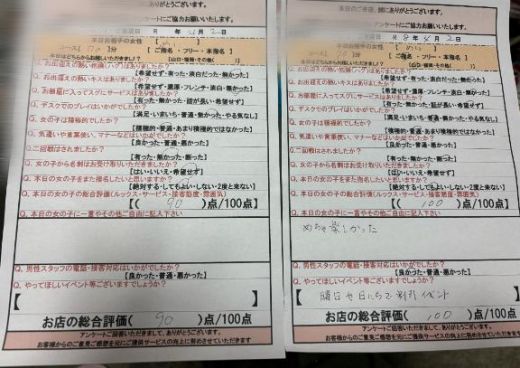 ありがとうございます。
アンケートにご協力お願いいたします。
本日お相手の女性
【ご指名・フリー・本指名】
Q.お部屋に入ってスグにサービスはありましたか?
【有った・無かった・話が長い・希望せず】
Q.デスクでのプレイはいかがでしたか?
【満足・いまいち・普通・無かった・やる気なし】
Q.女の子は積極的でしたか?
【積極的・普通・あまり積極的ではなかった】
Q.気遣いや言葉使い、マナーなどはいかがでしたか?
【良かった・普通・悪かった】
Q.二回戦はされましたか?
【有った・無かった・断った】
Q.女の子から名刺はお受け取りいただきましたか?
【はい・いいえ・希望せず】
Q.本日の女の子をまた指名したいと思いますか?
【絶対する・してもよい・しない・2度と来ない】
Q.本日の女の子の総合評価(ルックス・サービス・接客態度・雰囲気)
【( 90 )点/100点】
Q.本日の女の子に一言やその他ご自由に記入下さい
Q.男性スタッフの電話・接客対応はいかがでしたか?
【良かった・普通・悪かった】
Q.やってほしいイベント等ございますでしょうか?
【 】
お店の総合評価( 90 )点/100点
アンケートにご回答いただきまして、ありがとうございます。
お客様からのご意見ご感想を元にご提供サービスの向上に努めさせていただきます
ありがとうございます。
アンケートにご協力お願いいたします。
本日お相手の女性
【ご指名・フリー・本指名】
【希望せず・有った・淡白だった・無かった】
【希望せず・濃厚・フレンチ・淡白・無かった】
Q.お部屋に入ってスグにサービスはありましたか?
【有った・無かった・話が長い・希望せず】
Q.デスクでのプレイはいかがでしたか?
【満足・いまいち・普通・無かった・やる気なし】
Q.女の子は積極的でしたか?
【積極的・普通・あまり積極的ではなかった】
Q.気遣いや言葉使い、マナーなどはいかがでしたか?
【良かった・普通・悪かった】
Q.二回戦はされましたか?
【有った・無かった・断った】
Q.女の子から名刺はお受け取りいただきましたか?
【はい・いいえ・希望せず】
Q.本日の女の子をまた指名したいと思いますか?
【絶対する・してもよい・しない・2度と来ない】
Q.本日の女の子の総合評価(ルックス・サービス・接客態度・雰囲気)
【( 100 )点/100点】
Q.本日の女の子に一言やその他ご自由に記入下さい
めちゃ楽しかった
Q.男性スタッフの電話・接客対応はいかがでしたか?
【良かった・普通・悪かった】
Q.やってほしいイベント等ございますでしょうか?
【曜日や日にちで割引イベント】
お店の総合評価( 100 )点/100点
アンケートにご回答いただきまして、ありがとうございます。
お客様からのご意見ご感想を元にご提供サービスの向上に努めさせていただきます